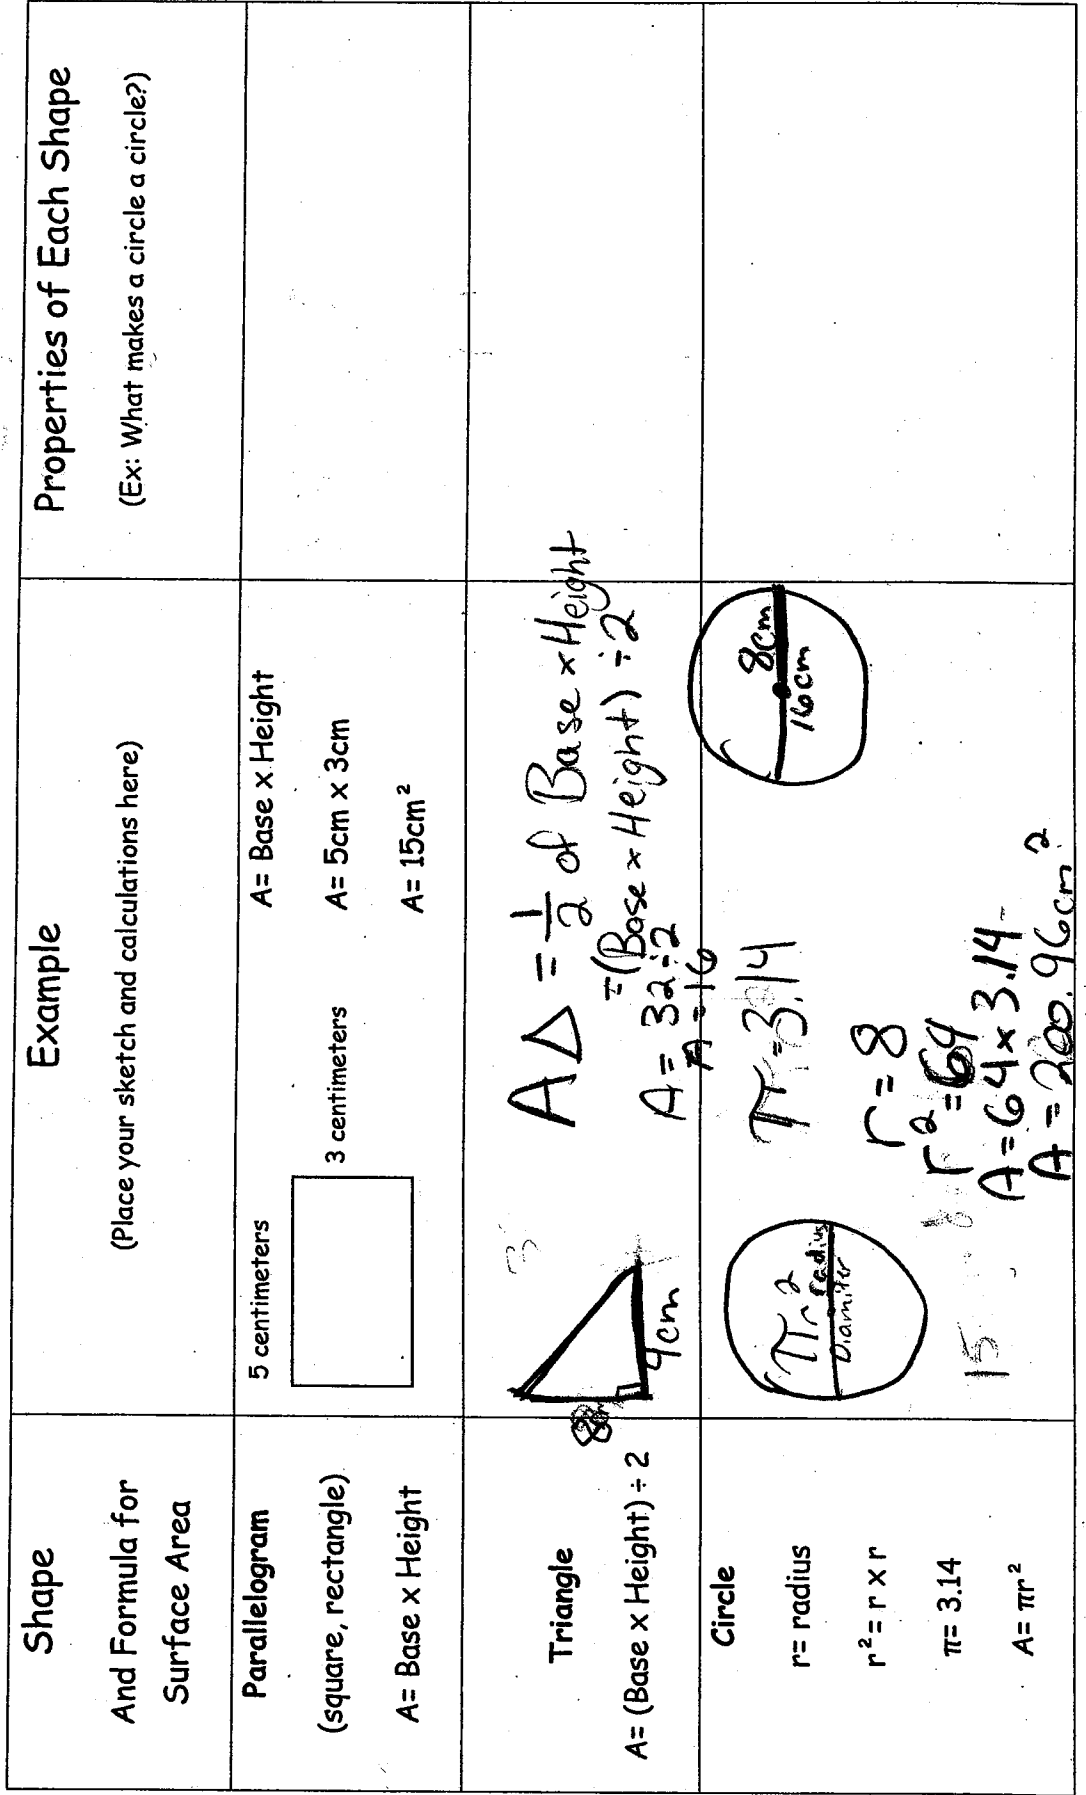 Shape
And Formula for
Surface Area
Example
(Place your sketch and calculations here)
Properties of Each Shape
(Ex: What makes a circle a circle?)
Parallelogram
(square, rectangle)
A= Base x Height
5 centimeters
3 centimeters
A= Base x Height
A= 5cm x 3cm
A= 15cm²
Triangle
A= (Base x Height) ÷ 2
8cm
4cm
A△ = 1/2 of Base x Height
=(Base x Height) ÷2
A = 32÷2
A = 16
Circle
r= radius
r²= r x r
π= 3.14
A= πr²
πr²
radius
Diamiter
15
π=3.14
r=8
r²=64
A=64x3.14
A=200.96cm²
8cm
16cm